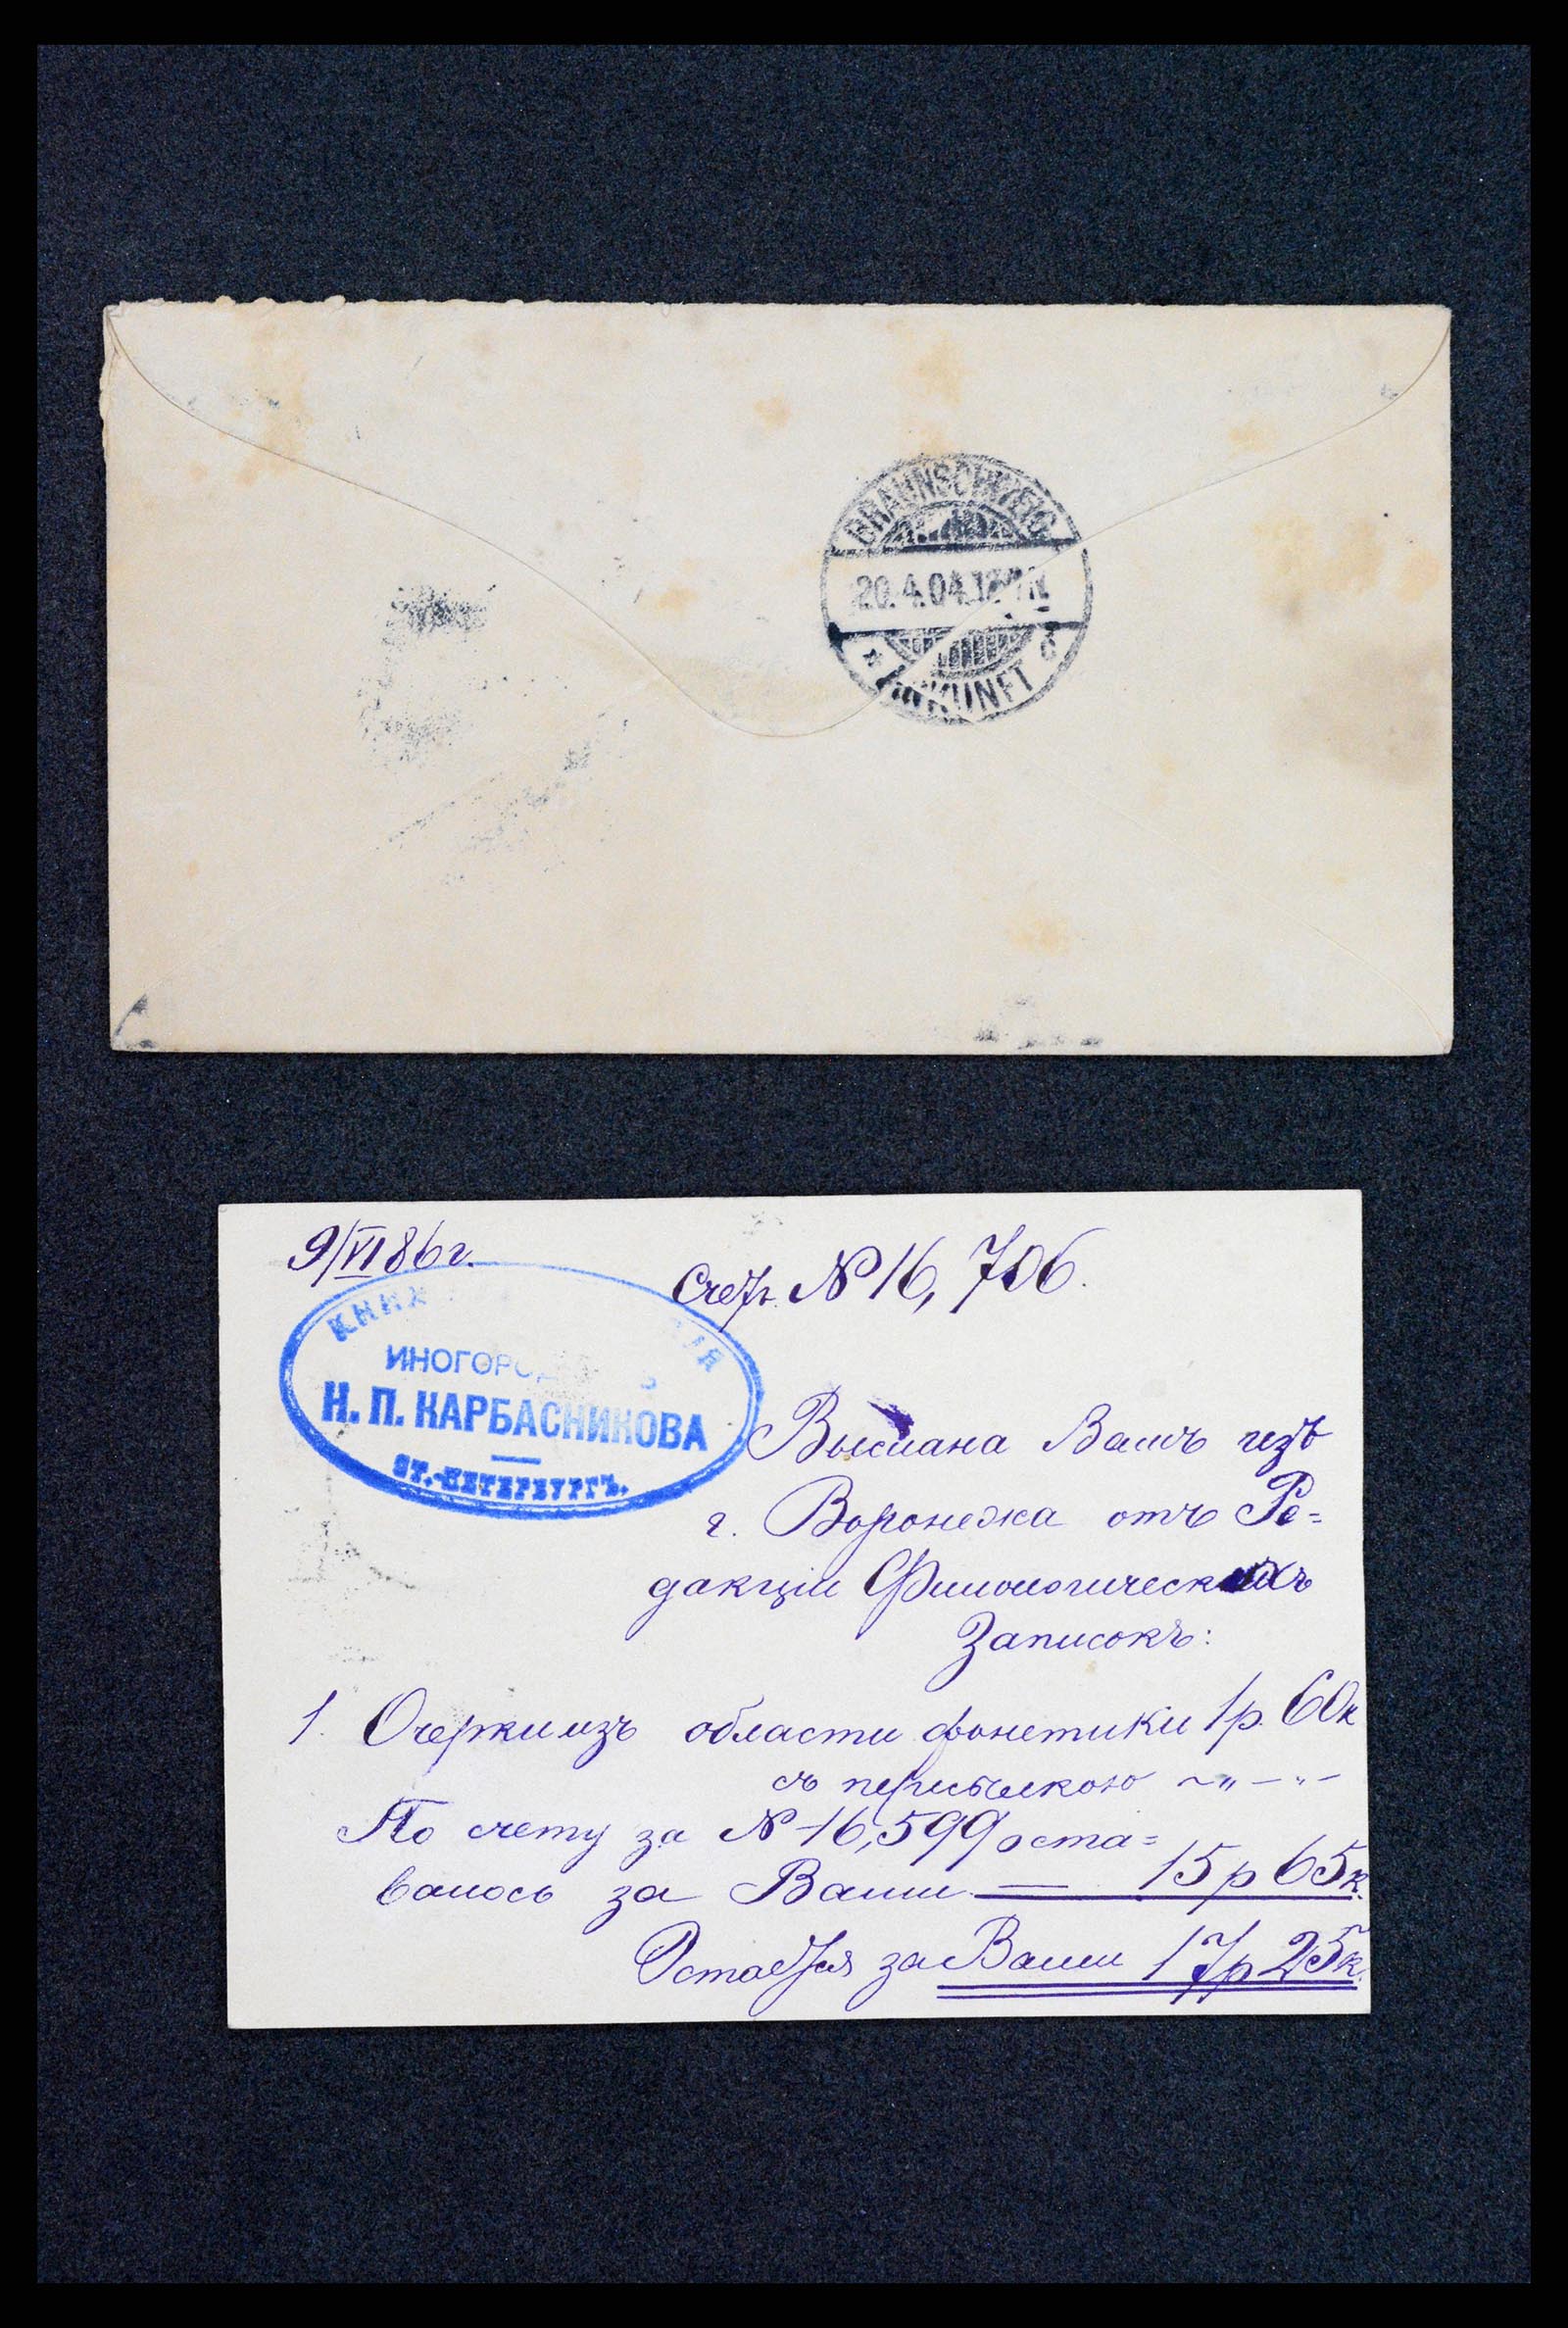 BRAUNSCHWEIG
20.4.04.12
* c
ANKUNFT
9/VI 86 г.
Счетъ № 16,706.
ИНОГОРО
Н. П. КАРБАСНИКОВА
СТ.-ПЕТЕРБУРГЪ.
Выслана Вамъ изъ
г. Воронежа отъ Ре=
дакціи Филологическихъ
Записокъ:
1. Очерки изъ области фонетики 1р. 60к
съ пересылкою ~ „ — „ —
По счету за № 16,599 оста=
валось за Вами — 15р 65к.
Остается за Вами 17р 25к.